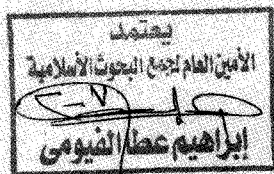 يعتمد
الأمين العام لمجمع البحوث الأسلامية
إبراهيم عطا الفيومى